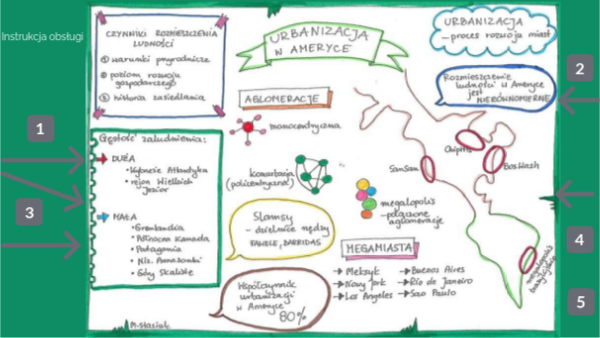 Instrukcja obsługi
1
3
2
4
5
CZYNNIKI ROZMIESZCZENIA
LUDNOŚCI
① warunki przyrodnicze
② poziom rozwoju
gospodarczego
③ historia zasiedlania
URBANIZACJA
W AMERYCE
URBANIZACJA
- proces rozwoju miast
Rozmieszczenie
ludności w Ameryce
jest
NIERÓWNOMIERNE
Gęstość zaludnienia:
DUŻA
• Wybrzeże Atlantyku
• rejon Wielkich
Jezior
MAŁA
• Grenlandia
• Północna Kanada
• Patagonia
• Niz. Amazonki
• Góry Skaliste
AGLOMERACJE
monocentryczna
konurbacja
(policentryczna)
megalopolis
- połączone
aglomeracje
Slamsy
- dzielnice nędzy
FAWELE, BARRIADAS
Współczynnik
urbanizacji
w Ameryce
80%
MEGAMIASTA
→ Meksyk
→ Nowy Jork
→ Los Angeles
→ Buenos Aires
→ Rio de Janeiro
→ Sao Paulo
ChipPitts
BosWash
SanSan
megalopolis
brazylijskie